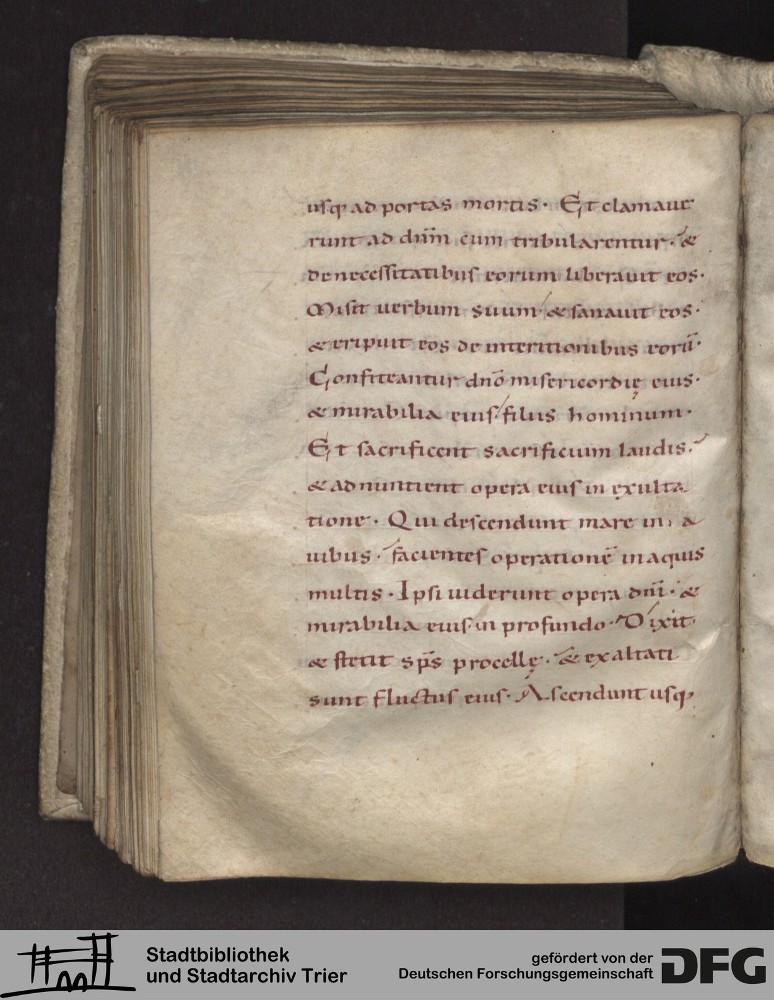 usq; ad portas mortis. Et clamaue
runt ad dnm̄ cum tribularentur. &
de necessitatibus eorum liberauit eos.
Misit uerbum suum & sanauit eos.
& eripuit eos de interitionibus eorū.
Confiteantur dnō misericordię eius.
& mirabilia eius filiis hominum.
Et sacrificent sacrificium laudis.
& adnuntient opera eius in exulta
tione. Qui descendunt mare in
uibus. facientes operationē in aquis
multis. Ipsi uiderunt opera dnī. &
mirabilia eius in profundo. Dixit
& stetit sp̄s procellę. & exaltati
sunt fluctus eius. Ascendunt usq;
Stadtbibliothek
und Stadtarchiv Trier
gefördert von der
Deutschen Forschungsgemeinschaft
DFG